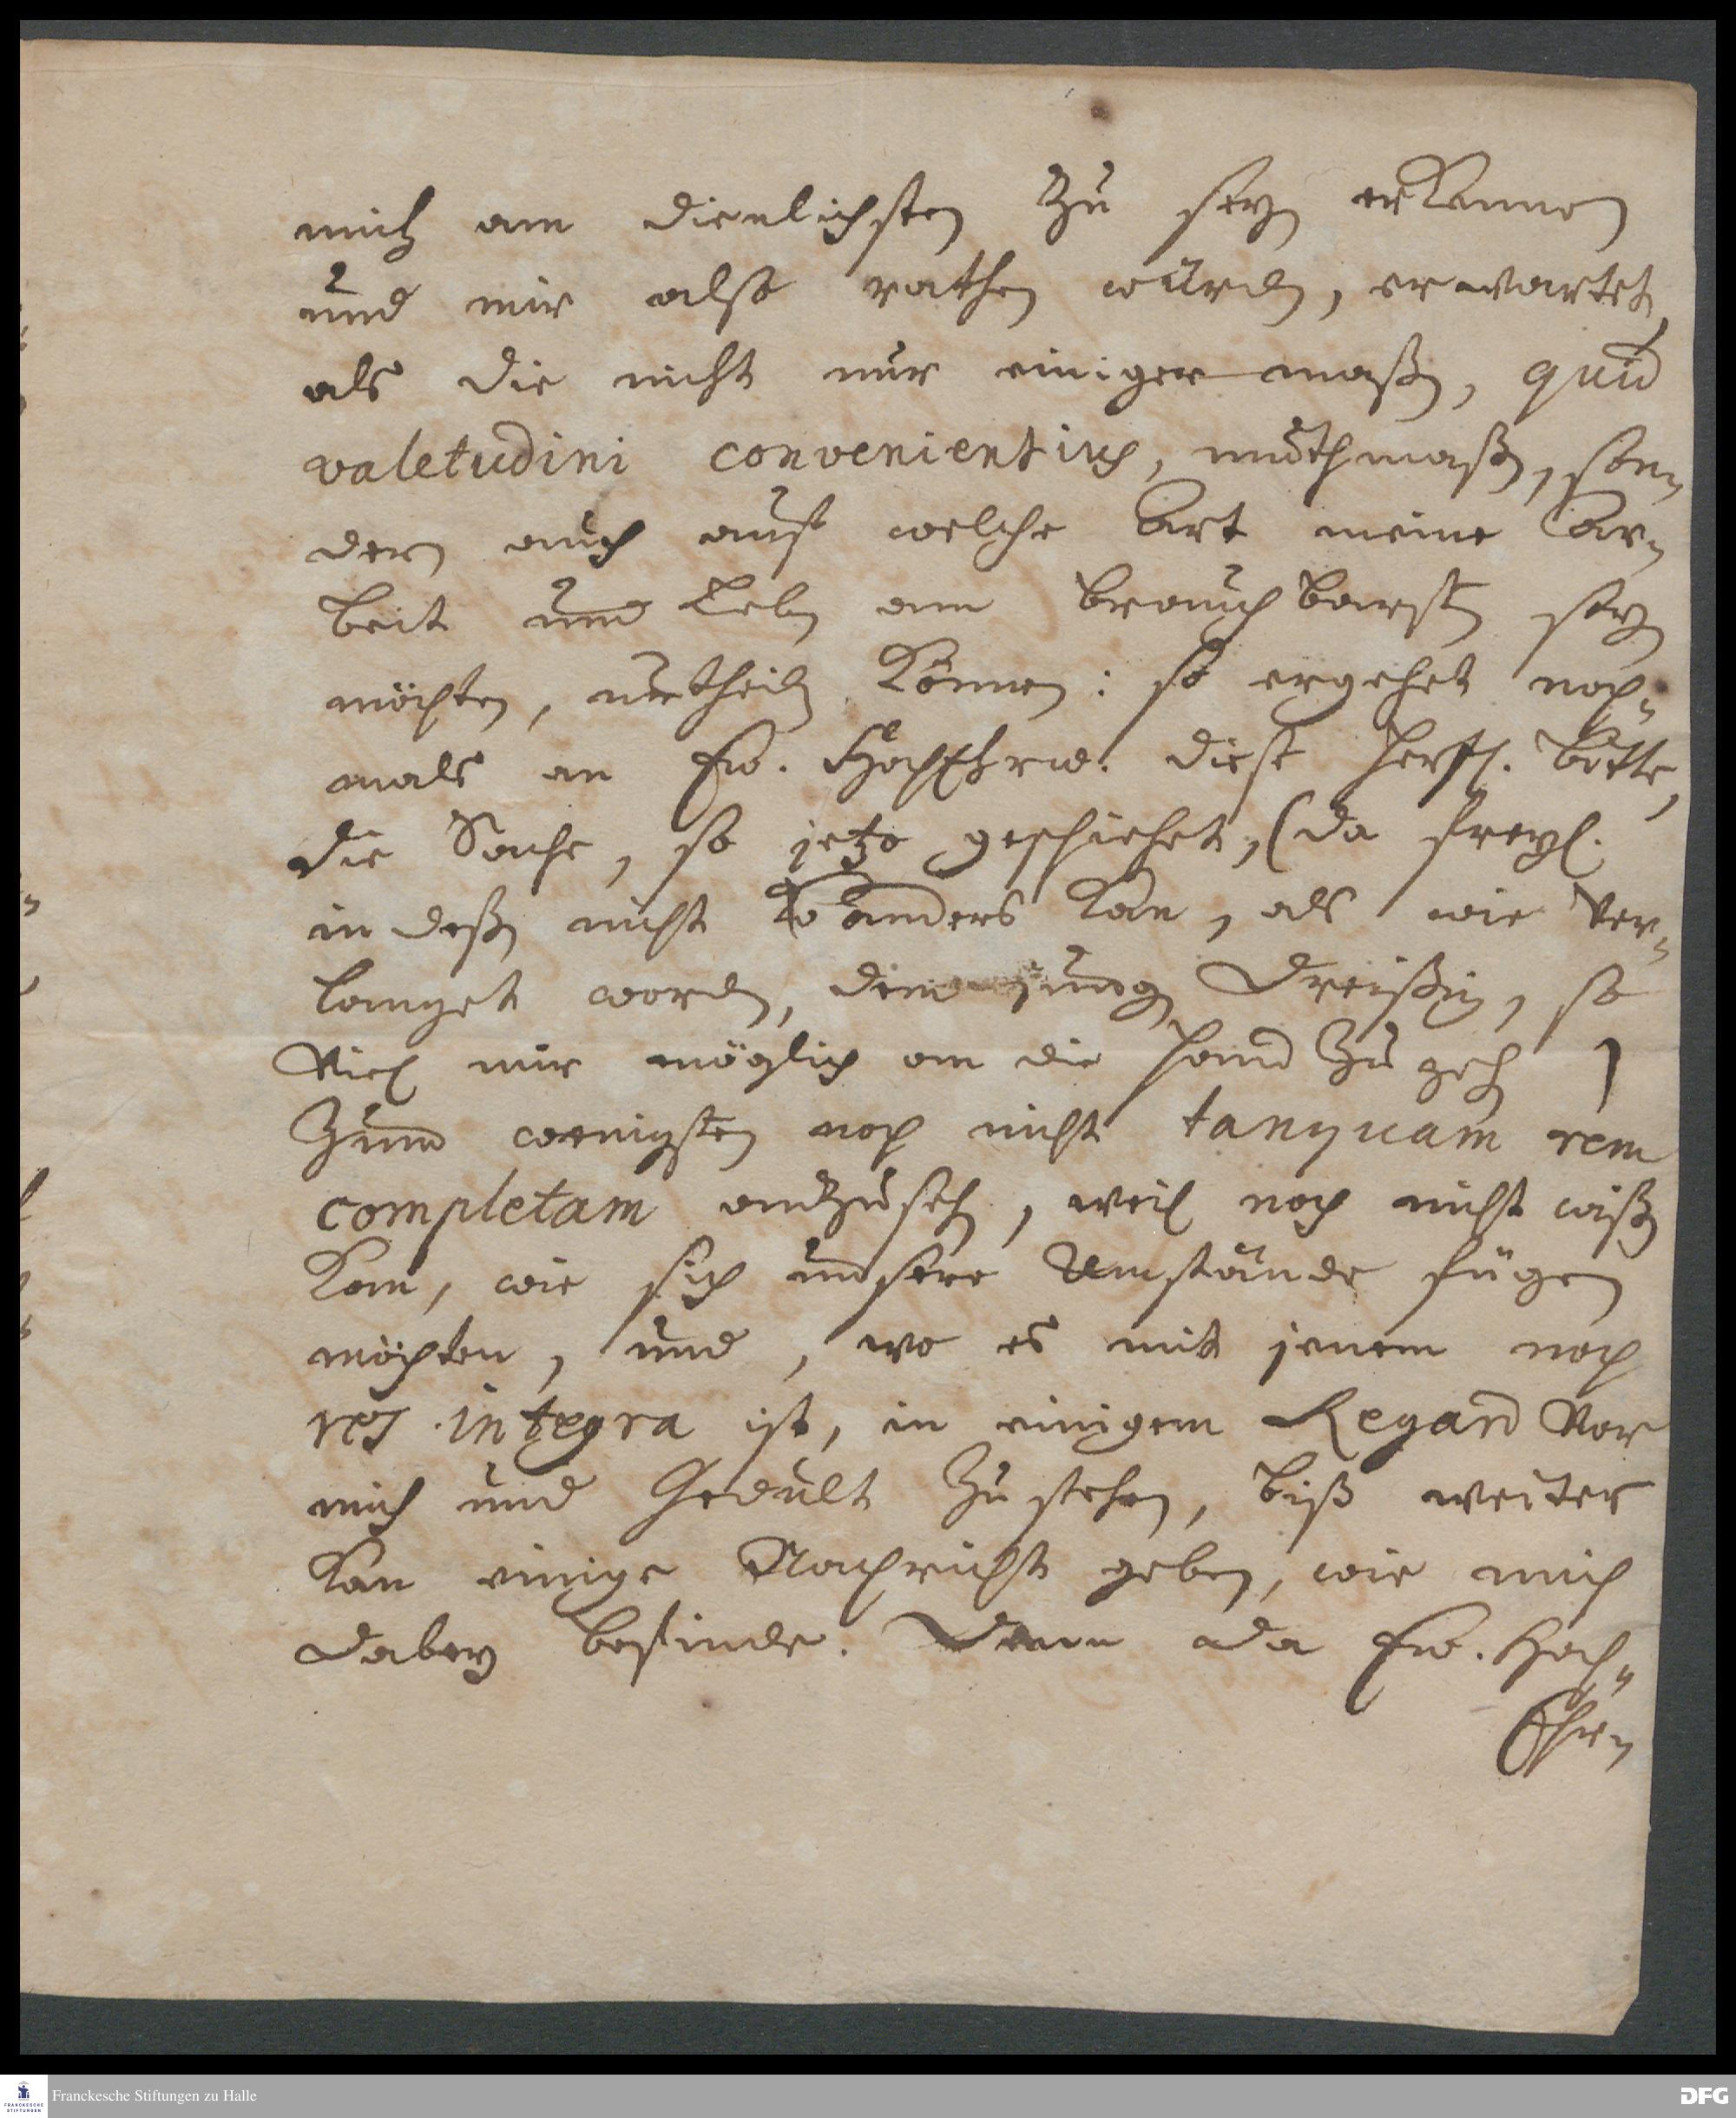 mich am dienlichsten zu seyn erkennen
und mir also rathen würden, erwartet,
als die nicht nur einiger maßen, quid
valetudini convenientius, muthmaßen, son-
dern auch auf welche Art meine Ar-
beit und Leben am brauchbarsten seyn
möchten, urtheilen können: so ergehet noch-
mals an Ew. HochEhrw. diese hertzl. bitte,
die Sache, so jetzo geschiehet, (da freyl.
in deßen nicht anders kan, als wie ver-
langet worden, dem jungen Dreißig, so
viel mir möglich an die Hand zu gehen)
zum wenigsten noch nicht tanquam rem
completam anzusehen, weil noch nicht wißen
kan, wie sich unsere Umstände fügen
möchten, und, wo es mit jenem noch
res integra ist, in einigem Regard vor
mich und Gedult zu stehen, biß weiter
kan einige Nachricht geben, wie mich
dabey befinde. Denn da Ew. Hoch-
Ehrn
Franckesche Stiftungen zu Halle
FRANCKESCHE STIFTUNGEN
DFG